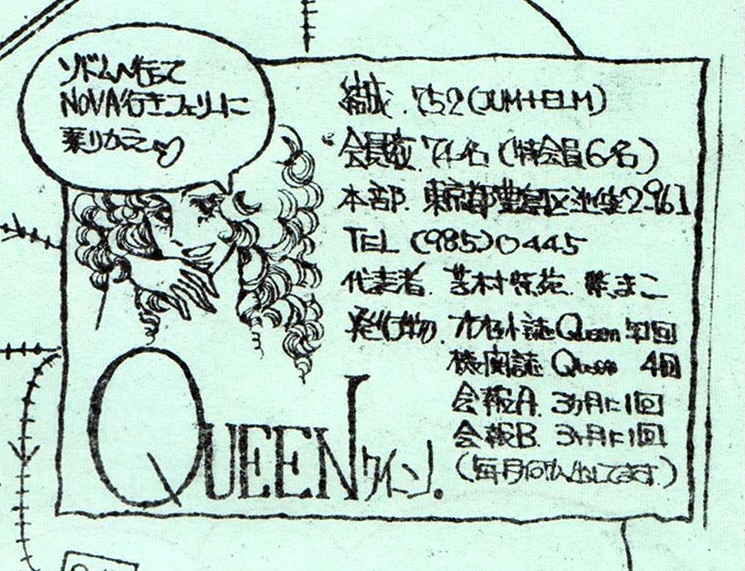 ソドムへ行って
NOVA行きフェリーに
乗りかえ♡
結成. 75.2 (JUM+ELM)
会員数. 74名 (特会員6名)
本部. 東京都豊島区池袋2-961
TEL (985) 0445
代表者.
発行物. オフセット誌 Queen 年1回
機関誌 Queen 4回
会報A. 3ヵ月に1回
会報B. 3ヶ月に1回
(毎月何か出してます)
QUEEN クイーン.